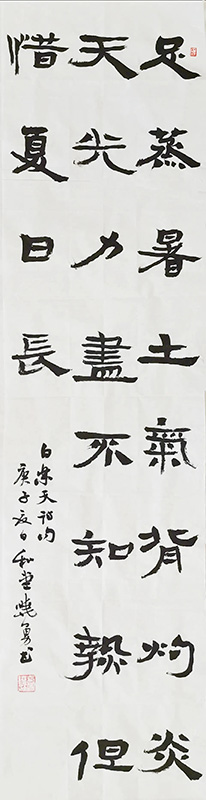 足蒸暑土氣背灼炎
天光力盡不知熱但
惜夏日長
白樂天詩句
庚子夏日